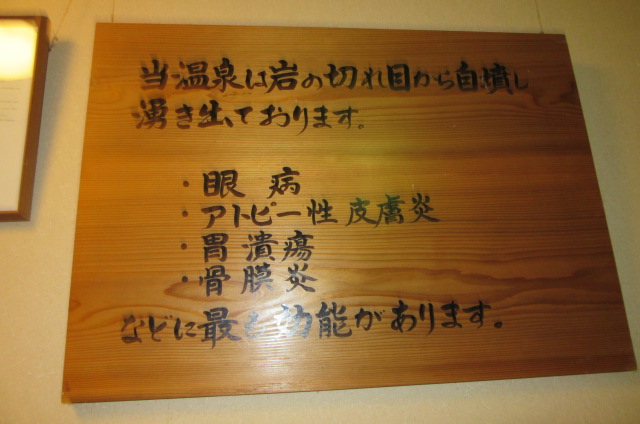 当温泉は岩の切れ目から自噴し
湧き出ております。
・眼 病
・アトピー性皮膚炎
・胃潰瘍
・骨膜炎
などに最も効能があります。